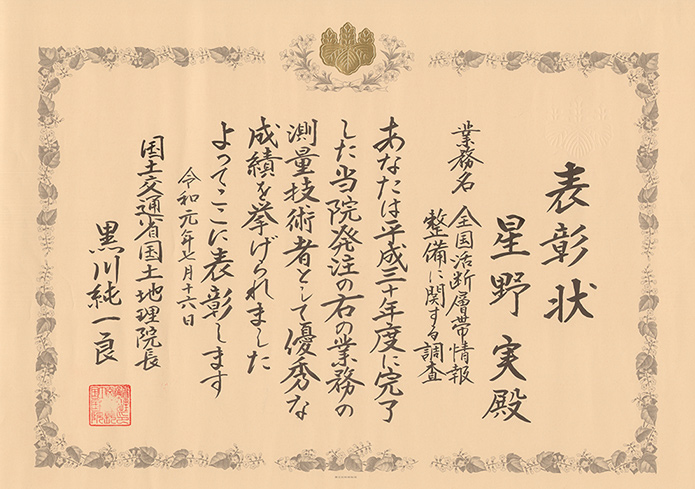 表彰状
星野 実 殿
業務名 全国活断層帯情報
整備に関する調査
あなたは平成三十年度に完了
した当院発注の右の業務の
測量技術者として優秀な
成績を挙げられました
よってここに表彰します
令和元年七月十六日
国土交通省国土地理院長
黒川純一良